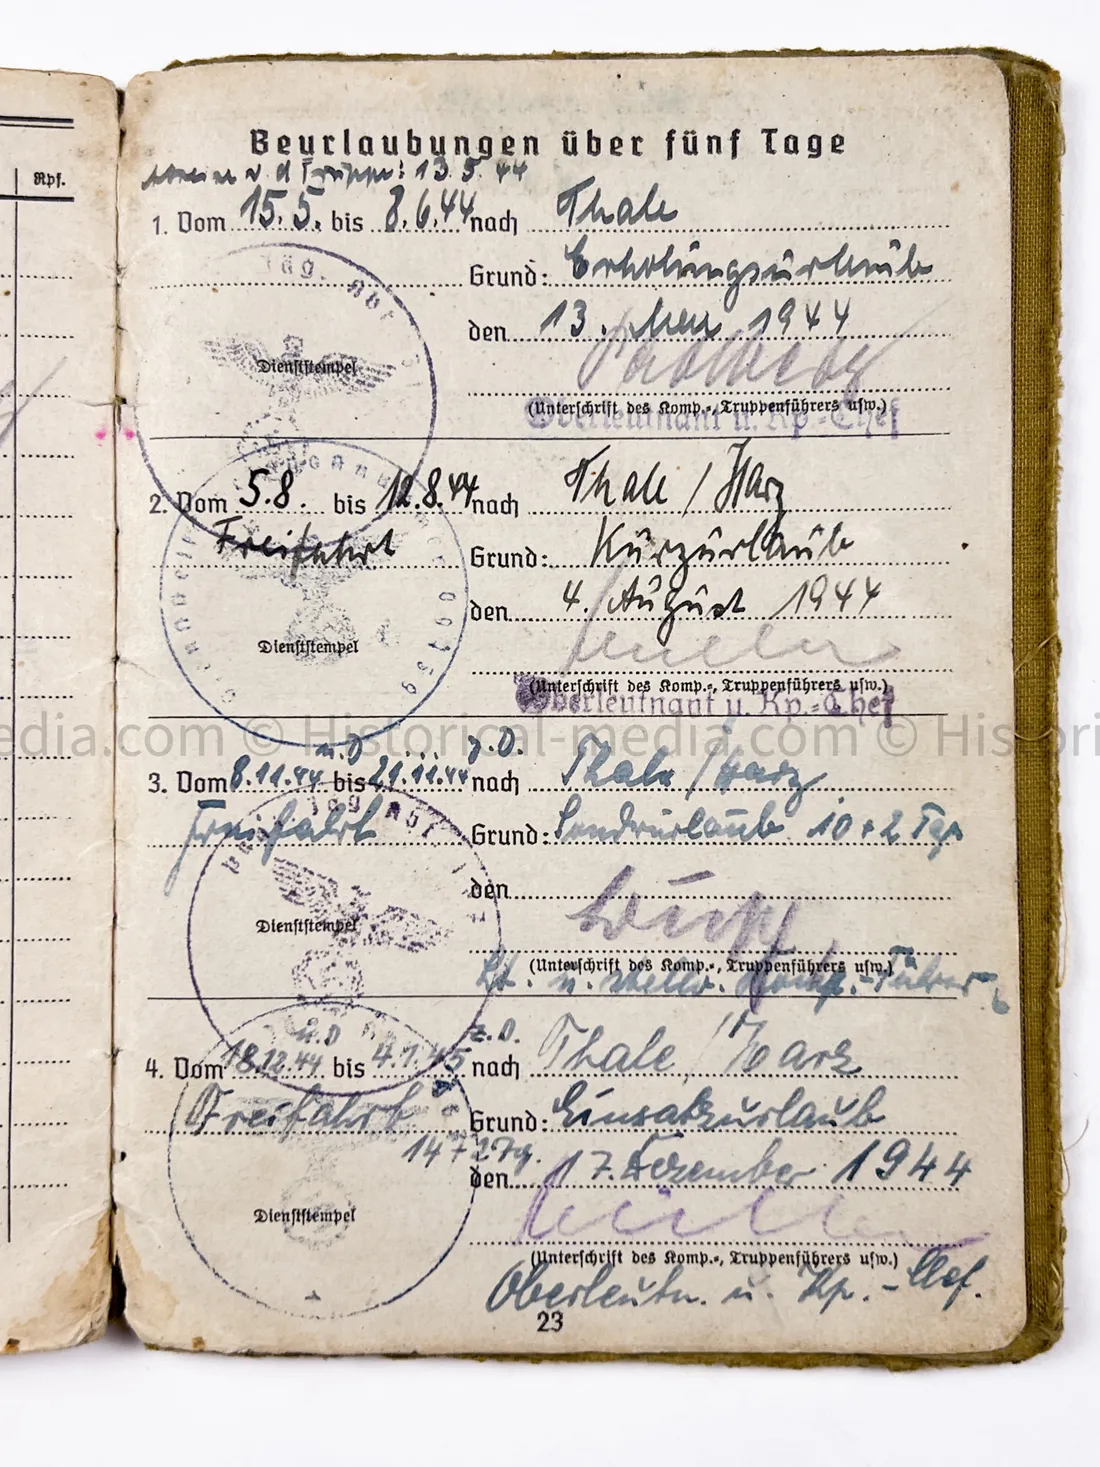 Rpf.
Beurlaubungen über fünf Tage
v. d. Truppe: 13. 5. 44
1. Vom 15. 5. bis 8. 6. 44 nach Thale
Grund: Erholungsurlaub
den 13. Mai 1944
Dienststempel
(Unterschrift des Komp.-, Truppenführers usw.)
Oberleutnant u. Kp.-Chef
2. Vom 5. 8. bis 12. 8. 44 nach Thale / Harz
Freifahrt Grund: Kurzurlaub
den 4. August 1944
Dienststempel
(Unterschrift des Komp.-, Truppenführers usw.)
Oberleutnant u. Kp.-Chef
edia.com © Historical-media.com © Histori
z. D.
3. Vom 8. 11. 44 bis 21. 11. 44 nach Thale / Harz
Freifahrt Grund: Sonderurlaub 10 + 2 Tge
den
Dienststempel
(Unterschrift des Komp.-, Truppenführers usw.)
Lt. u. stellv. Komp.-Führer
z. D.
4. Vom 18. 12. 44 bis 4. 1. 45 nach Thale / Harz
Freifahrt Grund: Einsatzurlaub
den 17. Dezember 1944
Dienststempel
(Unterschrift des Komp.-, Truppenführers usw.)
Oberleutn. u. Kp.-Chef.
23